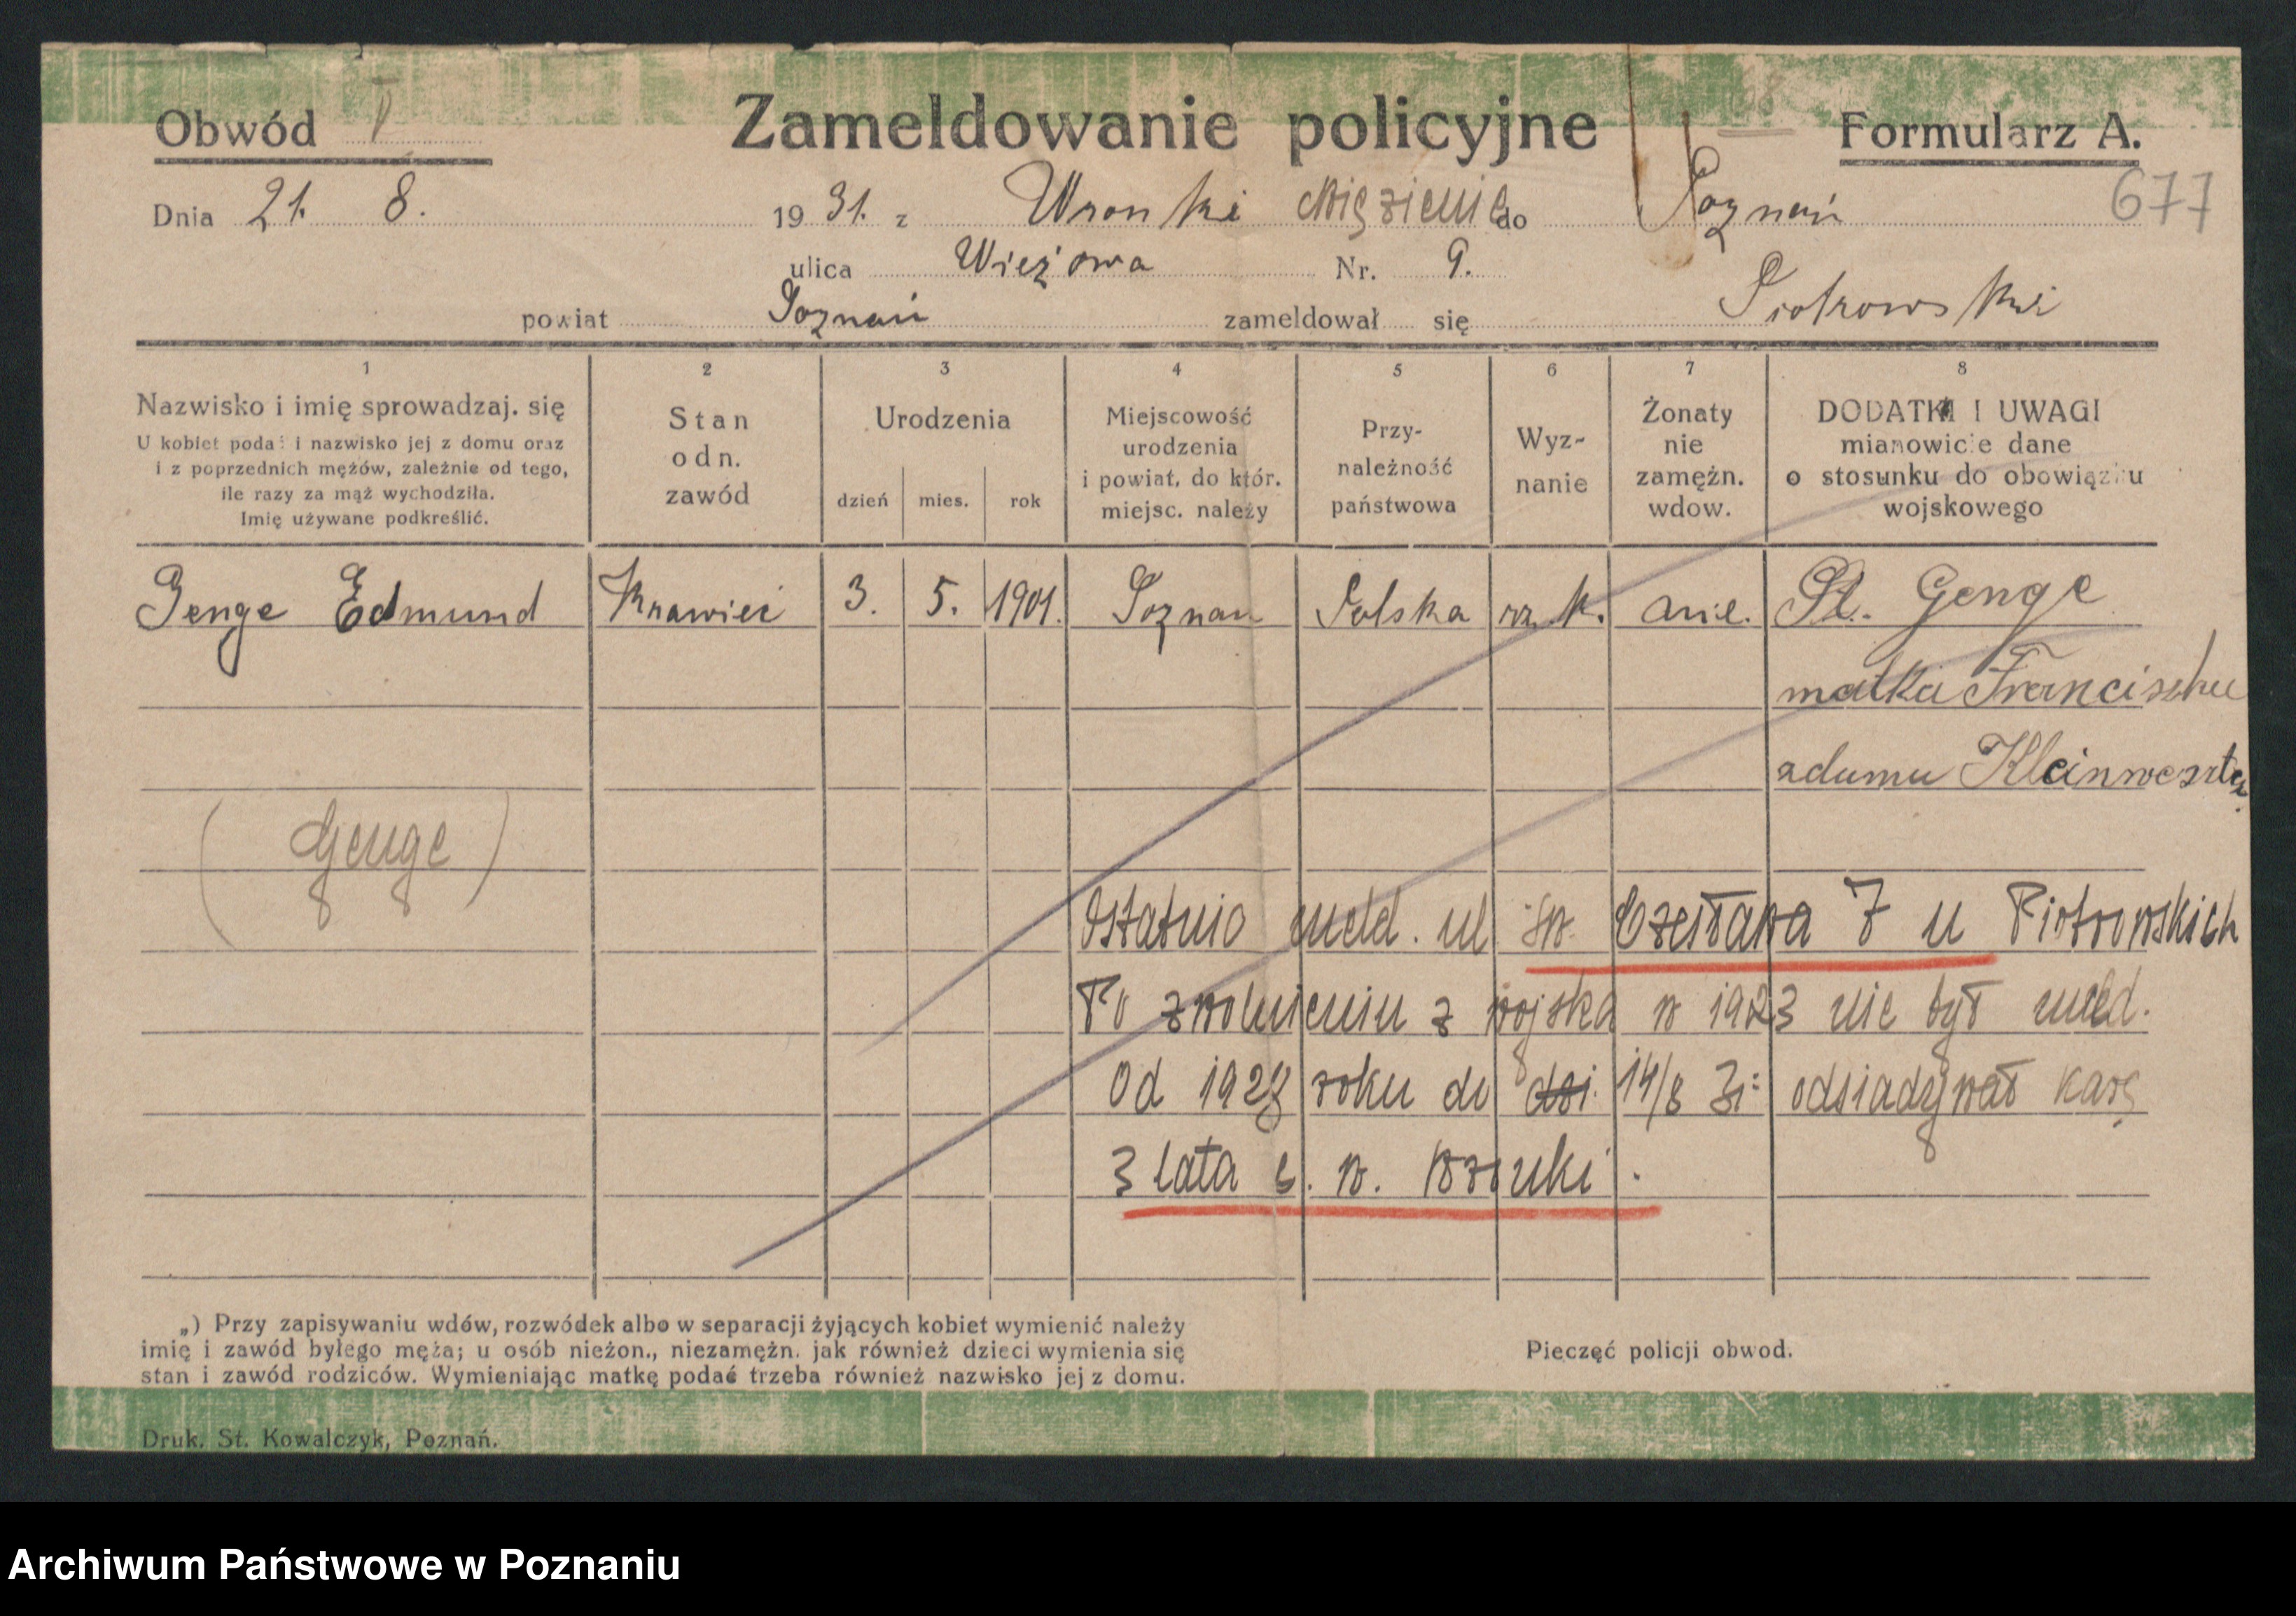 Obwód V
Zameldowanie policyjne
Formularz A.
677
Dnia 21. 8. 1931. z Wronki Więzienie do Poznań
ulica Wieżowa Nr. 9.
powiat Poznań zameldował się Piotrowski
1 2 3 4 5 6 7 8
Nazwisko i imię sprowadzaj. się
U kobiet podać i nazwisko jej z domu oraz
i z poprzednich mężów, zależnie od tego,
ile razy za mąż wychodziła.
Imię używane podkreślić.
Stan
odn.
zawód
Urodzenia
dzień mies. rok
Miejscowość
urodzenia
i powiat, do któr.
miejsc. należy
Przy-
należność
państwowa
Wyz-
nanie
Żonaty
nie
zamężn.
wdow.
DODATKI I UWAGI
mianowicie dane
o stosunku do obowiązku
wojskowego
Genge Edmund Krawiec 3. 5. 1901. Poznań Polska rz. k. nie. Genge
matka Franciszka
zdomu
(Genge)
Ostatnio meld. ul św. Czesława 7 u Piotrowskich
Po zwolnieniu z wojska w 1923 nie był meld.
Od 1928 roku do 14/8 31 odsiadywał karę
3 lata c. w.
„) Przy zapisywaniu wdów, rozwódek albo w separacji żyjących kobiet wymienić należy
imię i zawód byłego męża; u osób nieżon., niezamężn. jak również dzieci wymienia się
stan i zawód rodziców. Wymieniając matkę podać trzeba również nazwisko jej z domu.
Pieczęć policji obwod.
Druk. St. Kowalczyk, Poznań.
Archiwum Państwowe w Poznaniu